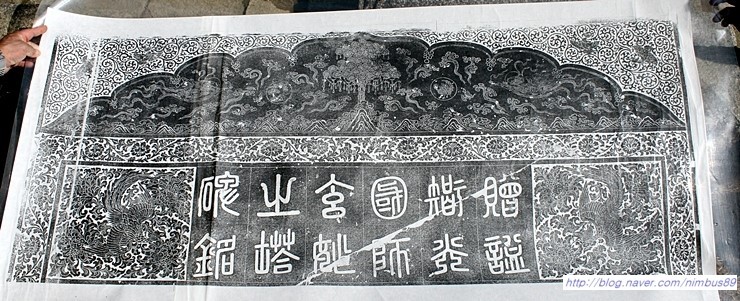 贈諡
智光
國師
玄妙
之塔
碑銘
http://blog.naver.com/nimbus89